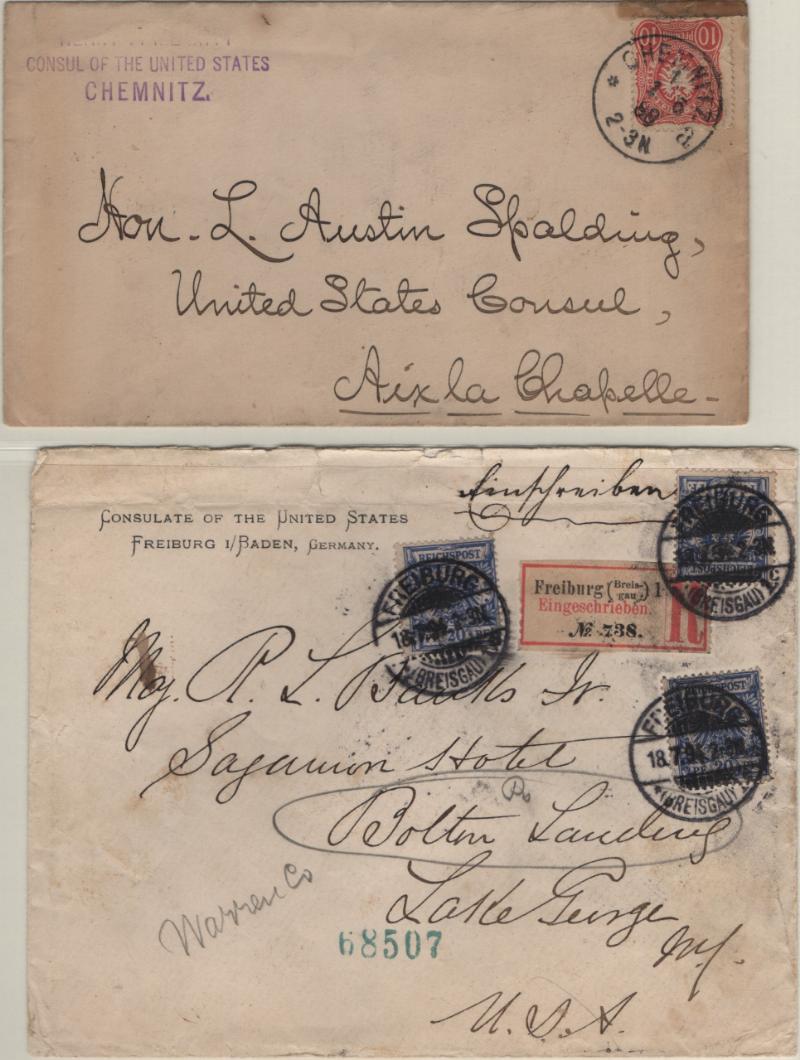 CONSUL OF THE UNITED STATES
CHEMNITZ.
10 10
CHEMNITZ
88
2-3N
a
Hon. L. Austin Spalding,
United States Consul,
Aix la Chapelle-
Einschreiben
CONSULATE OF THE UNITED STATES
FREIBURG I/BADEN, GERMANY.
REICHSPOST
FREIBURG
(BREISGAU)
Freiburg (Breis-gau) 1
Eingeschrieben.
№ 738.
R
FREIBURG
(BREISGAU)
REICHSPOST
FREIBURG
18.7.94
(BREISGAU)
Maj. R. L. Jr.
Sagamon Hotel
Po
Bolton Landing
Lake George
Warren Co
68507
NY.
U.S.A.